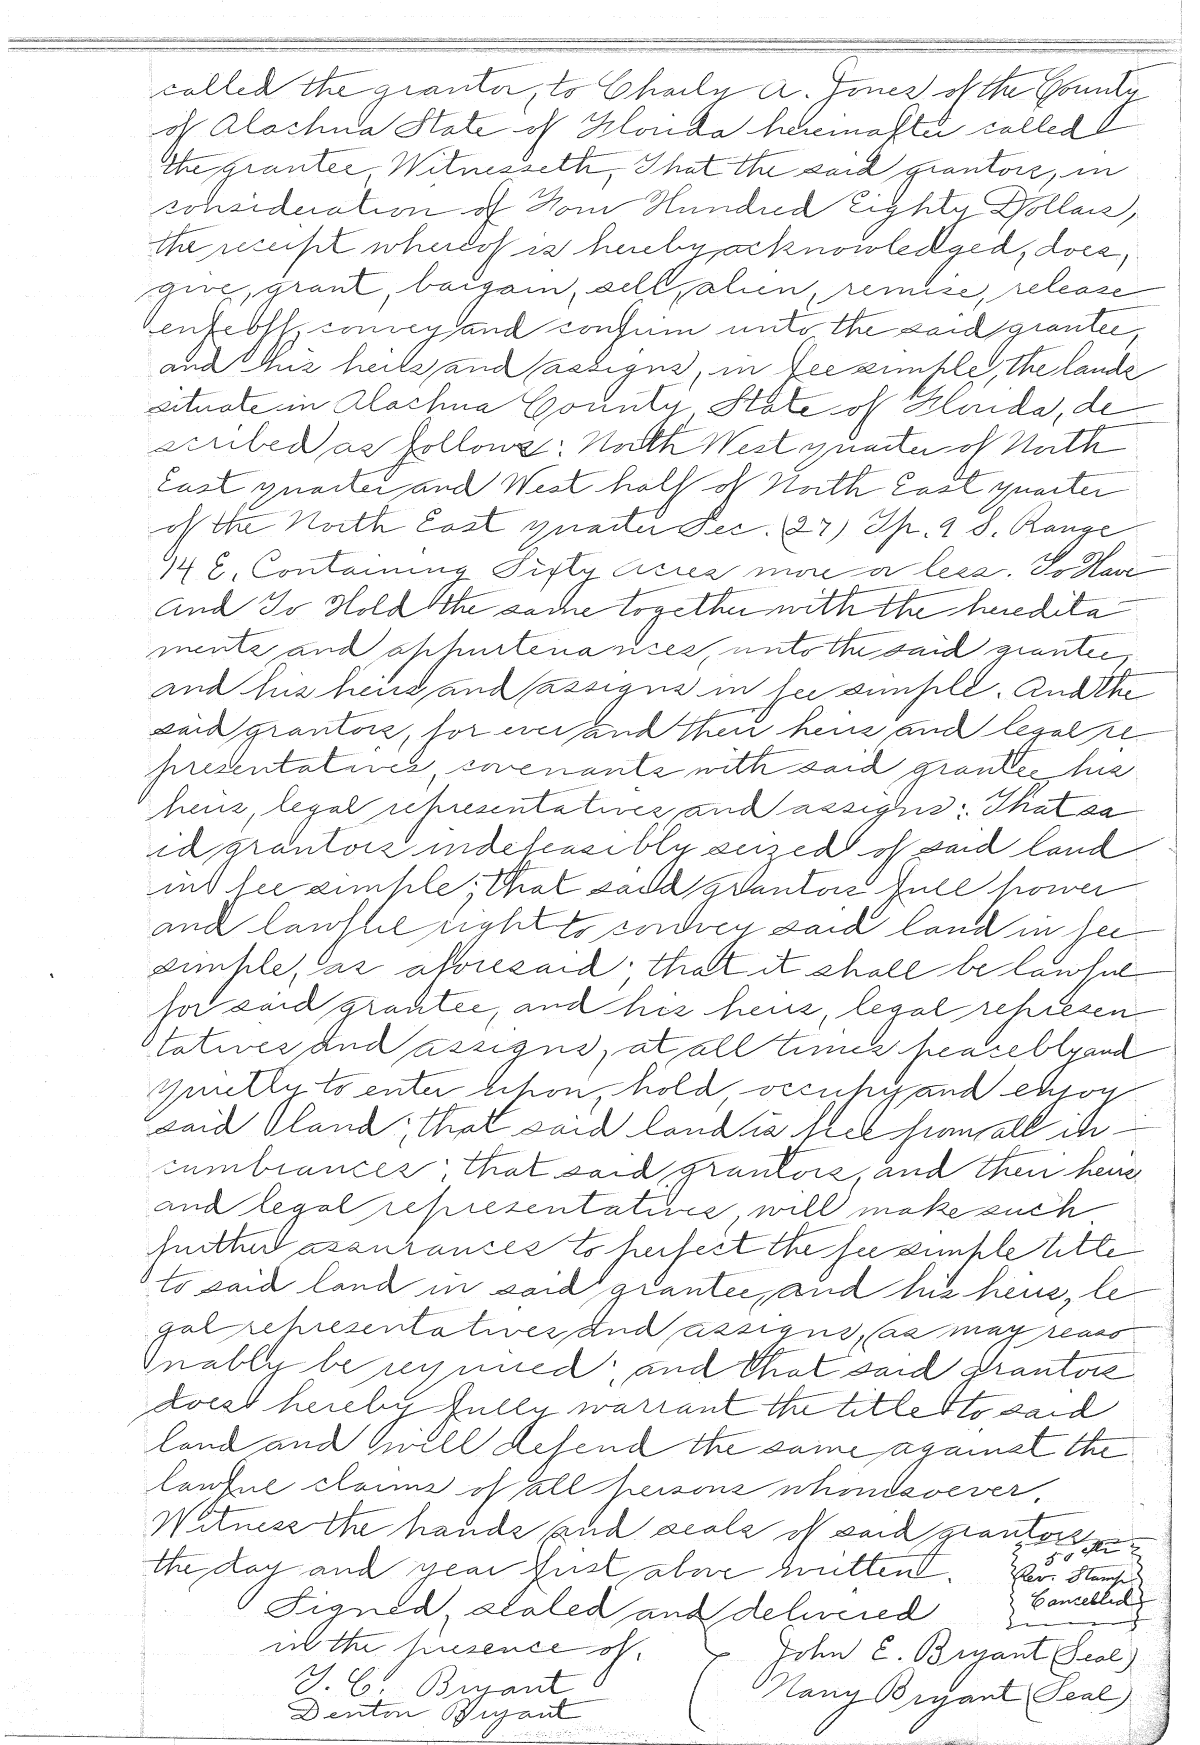 called the grantor, to Charly A. Jones of the County
of Alachua State of Florida hereinafter called
the grantee, Witnesseth, That the said grantors, in
consideration of Four Hundred Eighty Dollars,
the receipt whereof is hereby acknowledged, does,
give, grant, bargain, sell, alien, remise, release
enfeoff, convey and confirm unto the said grantee,
and his heirs and assigns, in fee simple, the lands
situate in Alachua County, State of Florida, de
scribed as follows: North West quarter of North
East quarter and West half of North East quarter
of the North East quarter Sec. (27) Tp. 9 S. Range
14 E. Containing Sixty Acres more or less. To Have
And To Hold the same together with the heredita
ments and appurtenances, unto the said grantee,
and his heirs and assigns in fee simple. And the
said grantors, for ever and their heirs and legal re
presentatives, covenants with said grantee, his
heirs, legal representatives and assigns: That sa
id grantors indefeasibly seized of said land
in fee simple; that said grantors full power
and lawful right to convey said land in fee
simple, as aforesaid; that it shall be lawful
for said grantee, and his heirs, legal represen
tatives and assigns, at all times peacebly and
quietly to enter upon, hold, occupy and enjoy
said land; that said land is free from all in
cumbrances; that said grantors, and their heirs
and legal representatives, will make such
further assurances to perfect the fee simple title
to said land in said grantee, and his heirs, le
gal representatives and assigns, as may reaso
nably be required; and that said grantors
does hereby fully warrant the title to said
land and will defend the same against the
lawful claims of all persons whomsoever.
Witness the hands and seals of said grantors
the day and year first above written.
50 cts
Rev. Stamp
Cancelled
Signed, sealed and delivered
in the presence of.
John E. Bryant (Seal)
T. C. Bryant
Nany Bryant (Seal)
Denton Bryant